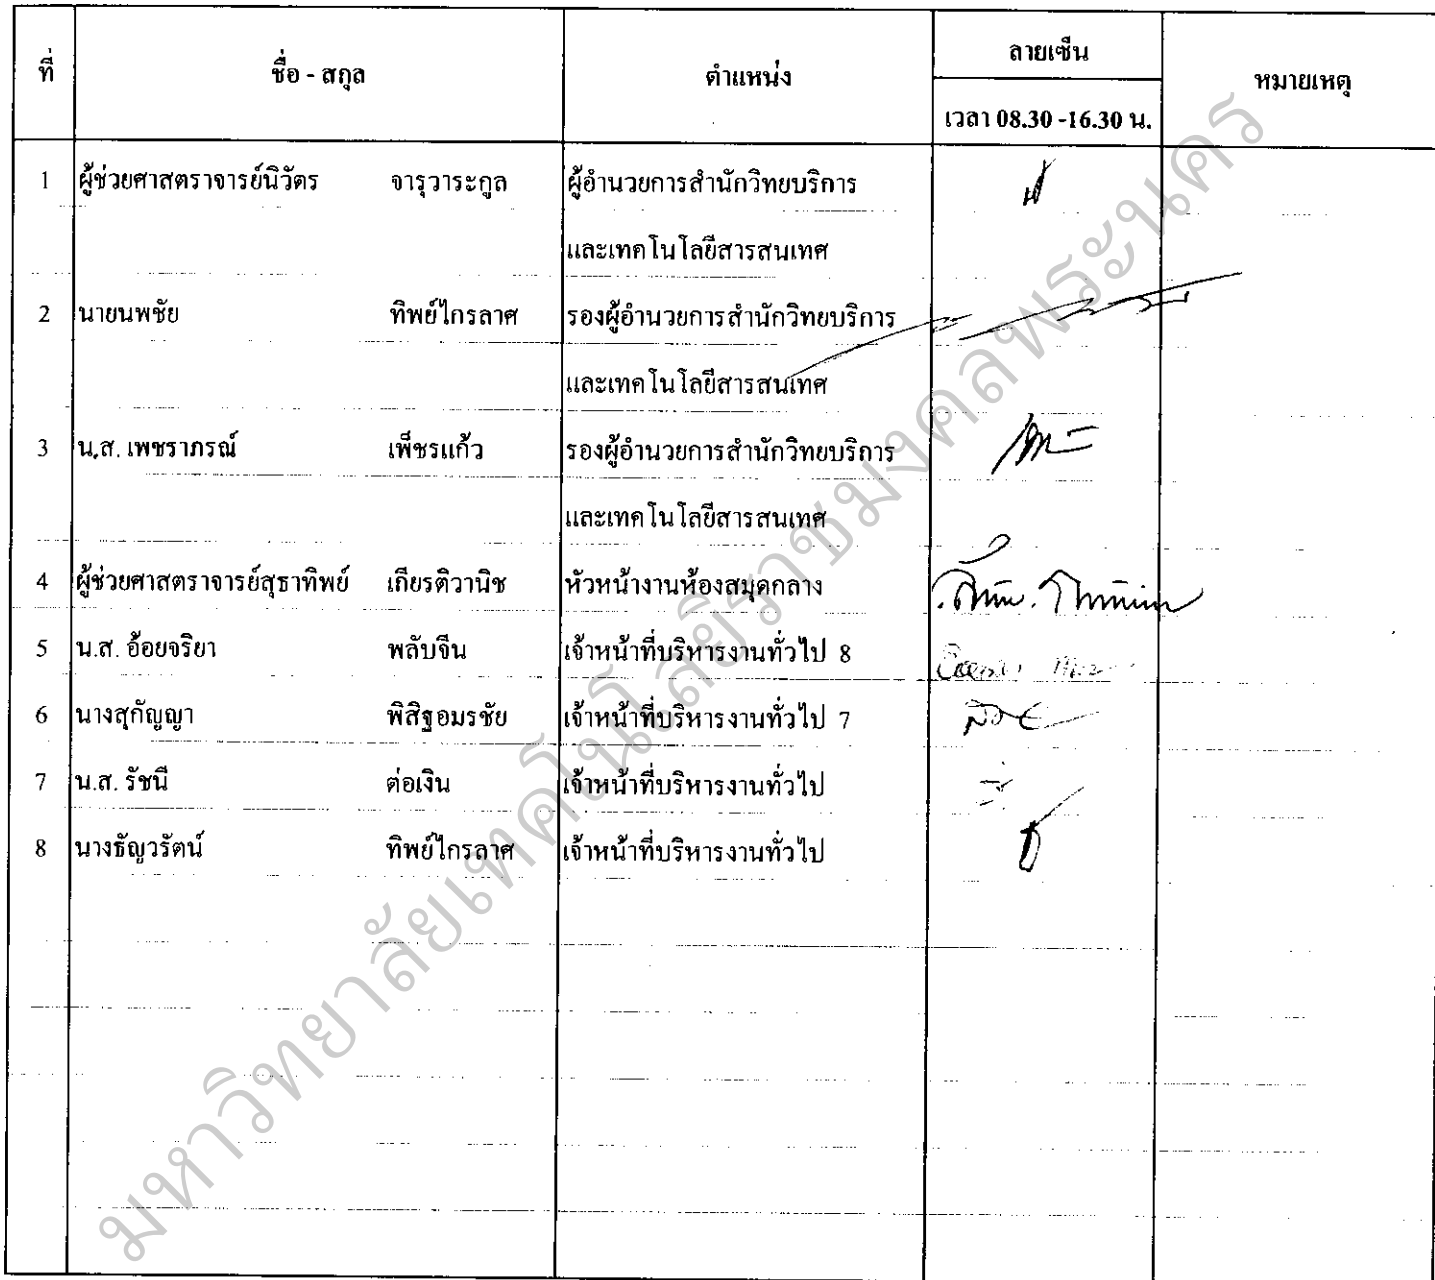 ที่ ชื่อ - สกุล ตำแหน่ง ลายเซ็น หมายเหตุ
เวลา 08.30 -16.30 น.
1 ผู้ช่วยศาสตราจารย์นิวัตร จารุวาระกูล ผู้อำนวยการสำนักวิทยบริการ
และเทคโนโลยีสารสนเทศ
2 นายนพชัย ทิพย์ไกรลาศ รองผู้อำนวยการสำนักวิทยบริการ
และเทคโนโลยีสารสนเทศ
3 น.ส. เพชราภรณ์ เพ็ชรแก้ว รองผู้อำนวยการสำนักวิทยบริการ
และเทคโนโลยีสารสนเทศ
4 ผู้ช่วยศาสตราจารย์สุธาทิพย์ เกียรติวานิช หัวหน้างานห้องสมุดกลาง
5 น.ส. อ้อยจริยา พลับจีน เจ้าหน้าที่บริหารงานทั่วไป 8
6 นางสุกัญญา พิสิฐอมรชัย เจ้าหน้าที่บริหารงานทั่วไป 7
7 น.ส. รัชนี ต่อเงิน เจ้าหน้าที่บริหารงานทั่วไป
8 นางธัญวรัตน์ ทิพย์ไกรลาศ เจ้าหน้าที่บริหารงานทั่วไป
มหาวิทยาลัยเทคโนโลยีราชมงคลพระนคร